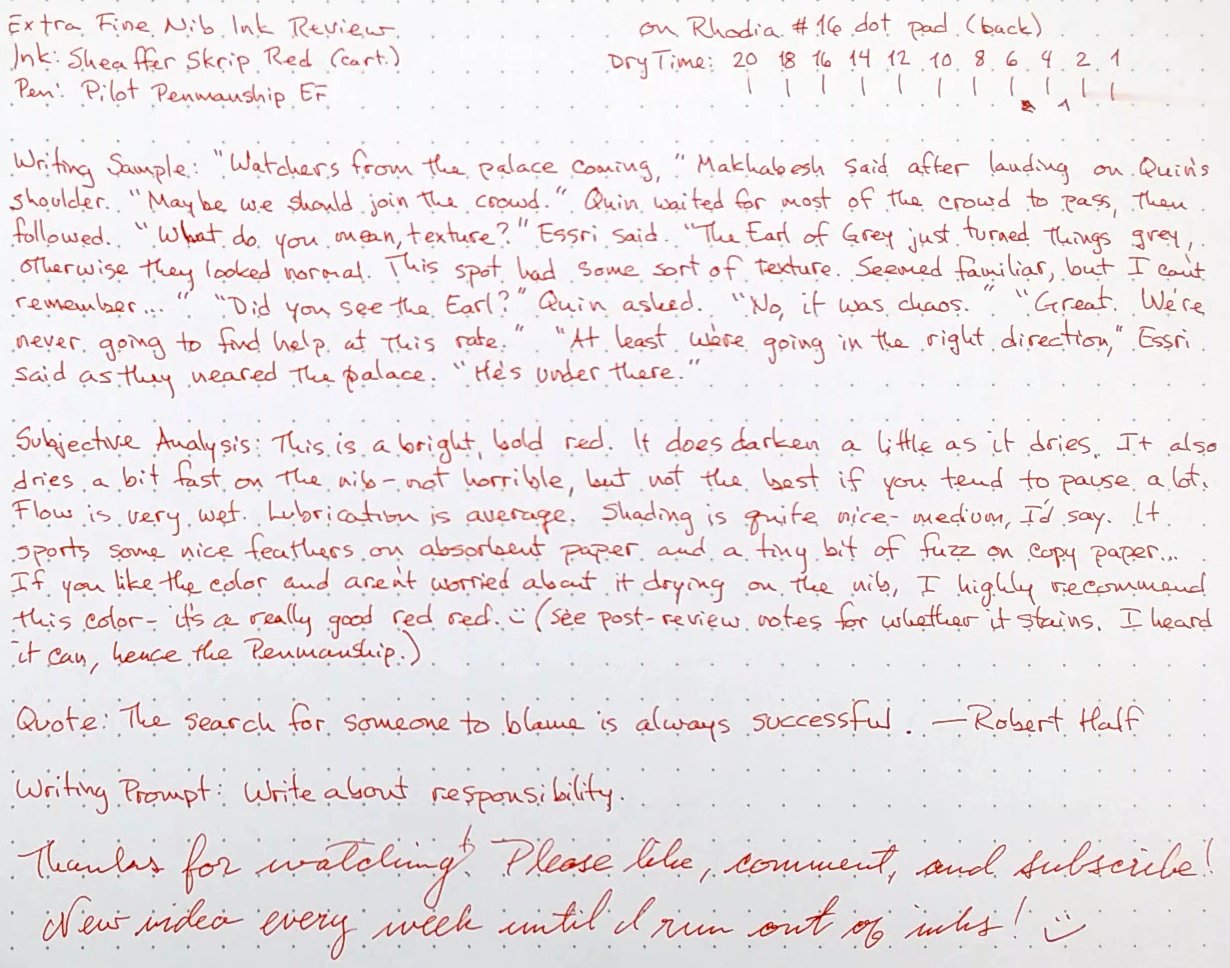 Extra Fine Nib Ink Review
on Rhodia #16 dot pad (back)
Ink: Sheaffer Skrip Red (cart.)
Dry Time: 20 18 16 14 12 10 8 6 4 2 1
Pen: Pilot Penmanship EF
Writing Sample: "Watchers from the palace coming," Makhabesh said after landing on Quin's
shoulder. "Maybe we should join the crowd." Quin waited for most of the crowd to pass, then
followed. "What do you mean, texture?" Essri said. "The Earl of Grey just turned things grey,
otherwise they looked normal. This spot had some sort of texture. Seemed familiar, but I can't
remember..." "Did you see the Earl?" Quin asked. "No, it was chaos." "Great. We're
never going to find help at this rate." "At least we're going in the right direction," Essri
said as they neared the palace. "He's under there."
Subjective Analysis: This is a bright, bold red. It does darken a little as it dries. It also
dries a bit fast on the nib - not horrible, but not the best if you tend to pause a lot.
Flow is very wet. Lubrication is average. Shading is quite nice - medium, I'd say. It
sports some nice feathers on absorbent paper and a tiny bit of fuzz on copy paper...
If you like the color and aren't worried about it drying on the nib, I highly recommend
this color - it's a really good red red. :) (See post-review notes for whether it stains. I heard
it can, hence the Penmanship.)
Quote: The search for someone to blame is always successful. —Robert Half
Writing Prompt: Write about responsibility.
Thanks for watching! Please like, comment, and subscribe!
New video every week until I run out of inks! :)